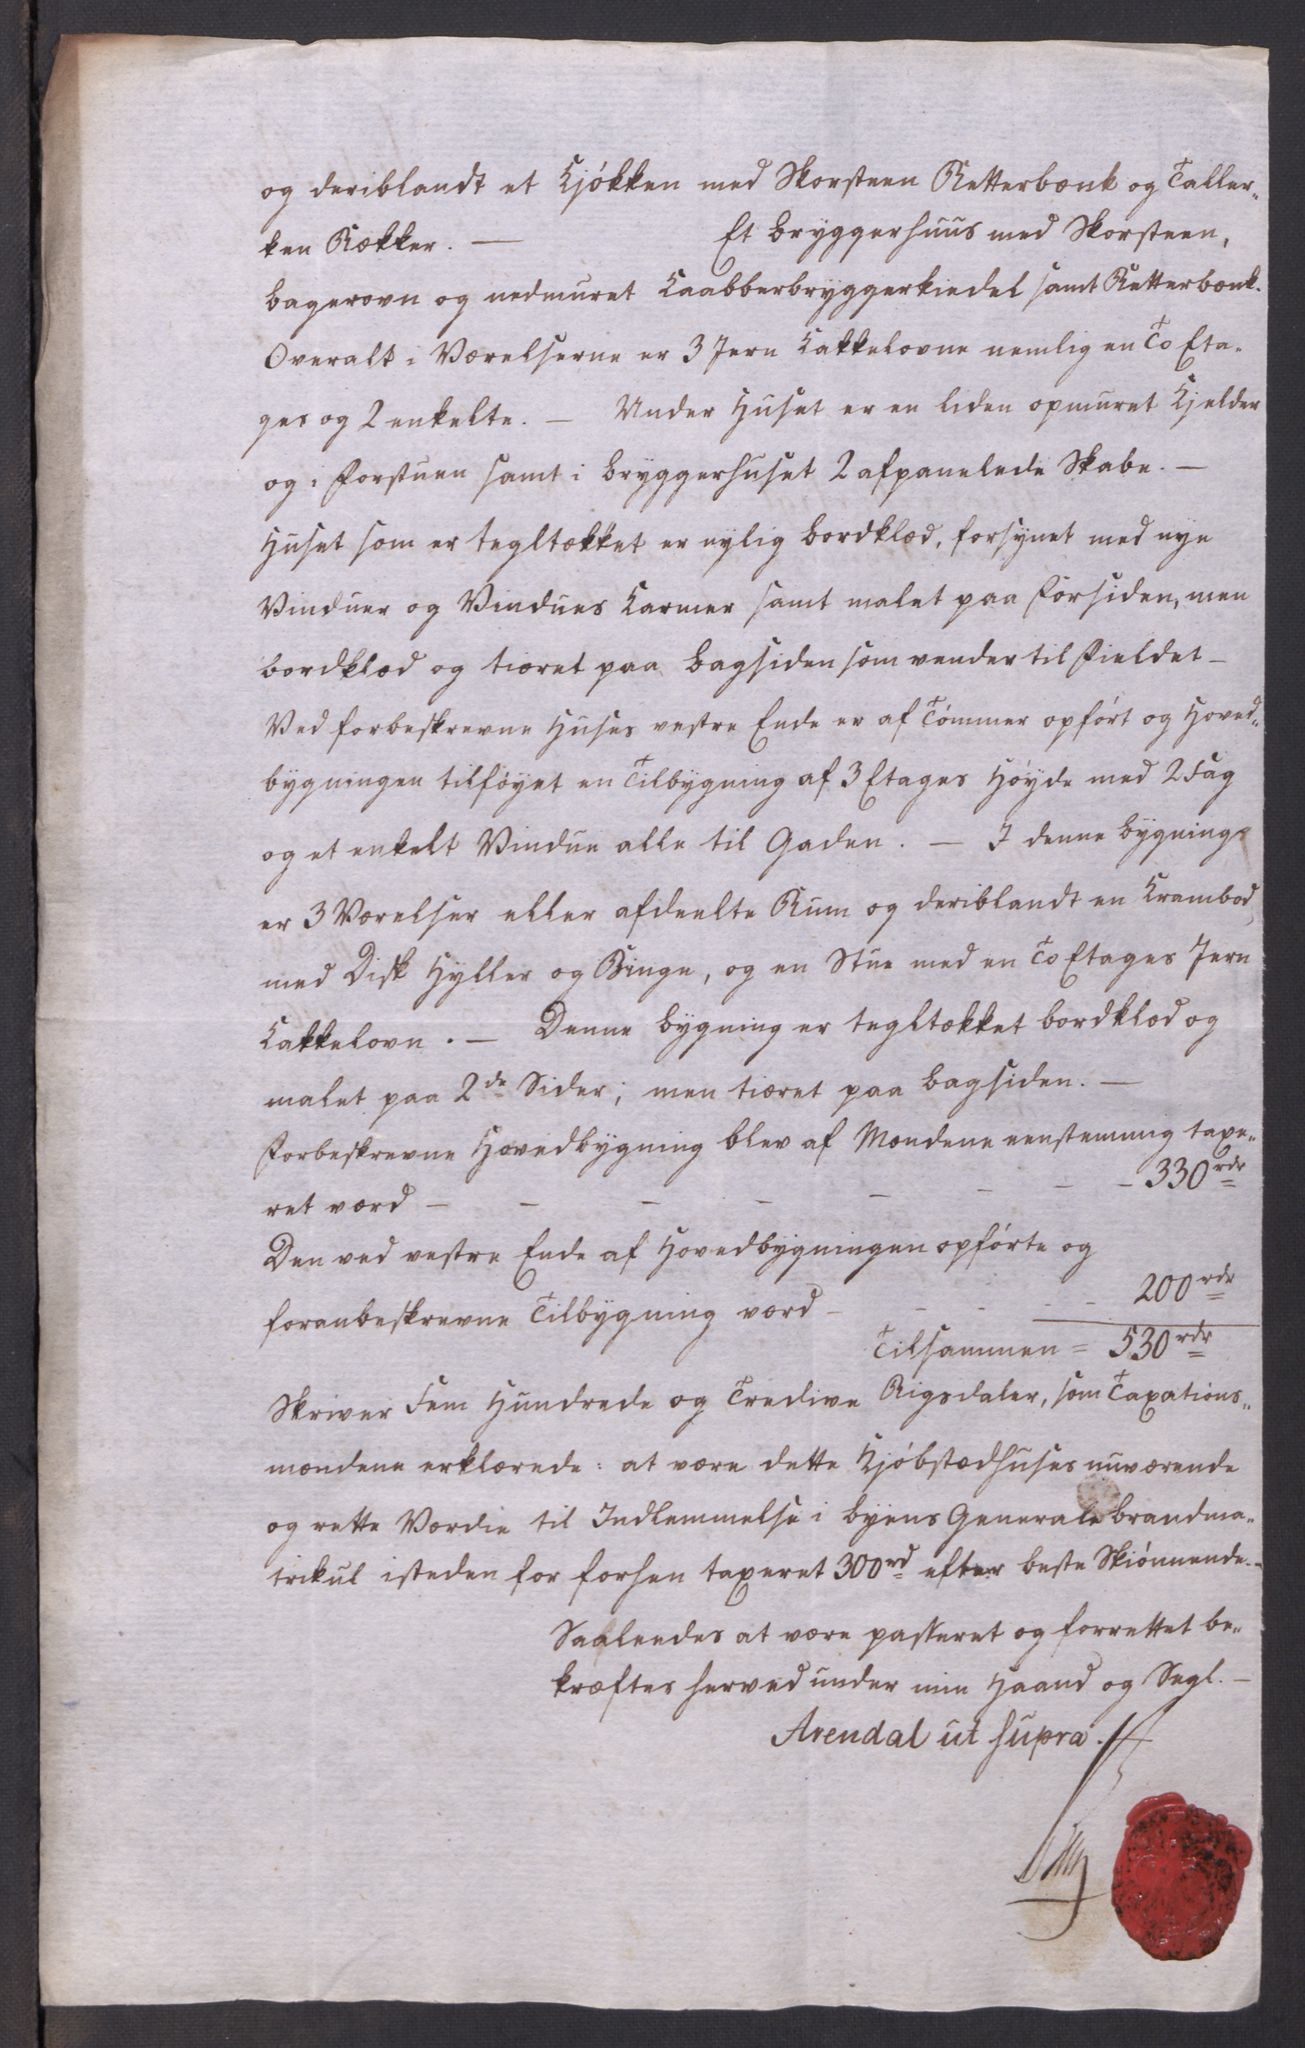 og deriblandt et Kjøkken med Skorsteen Retterbænk og Taller„
ken Rækker. — Et Bryggerhuus med Skorsteen,
Bagerovn og nedmuret Kaabberbryggerkiedel samt Retterbænk.
Overalt i Værelserne er 3 Jern Kakkelovne nemlig en To Eta„
ges og 2 enkelte. — Under Huset er en liden opmuret Kjelder
og i Forstuen samt i Bryggerhuset 2 afpanelede Skabe. —
Huset som er tegltækket er nylig bordklæd, forsynet med nye
Vinduer og Vindues Karmer samt malet paa Forsiden, men
bordklæd og tiæret paa Bagsiden som vender til Fieldet —
Ved forbeskrevne Huses vestre Ende er af Tømmer opført og Hoved„
bygningen tilføyet en Tilbygning af 3 Etages Høyde med 2 Fag
og et enkelt Vindue alle til Gaden. — I denne Bygning
er 3 Værelser eller afdeelte Rum og deriblandt en Krambod
med Disk Hyller og Binge, og en Stue med en To Etages Jern
Kakkelovn. — Denne Bygning er tegltækket bordklæd og
malet paa 2de Sider; men tiæret paa Bagsiden. —
Forbeskrevne Hovedbygning blev af Mændene eenstemmig taxe„
ret værd — — — — — — — — 330 rdr
Den ved vestre Ende af Hovedbygningen opførte og
foranbeskrevne Tilbygning værd — — — — — 200 rdr
Tilsammen = 530 rdr
Skriver Fem Hundrede og Tredive Rigsdaler, som Taxations„
mændene erklærede: at være dette Kjøbstædhuses nuværende
og rette Værdie til Indlemmelse i Byens Generale Brandma„
trikul isteden for forhen taxeret 300 rd efter beste Skiønnende. —
Saaleedes at være passeret og forrettet be„
kræftes herved under min Haand og Segl. —
Arendal ut supra.